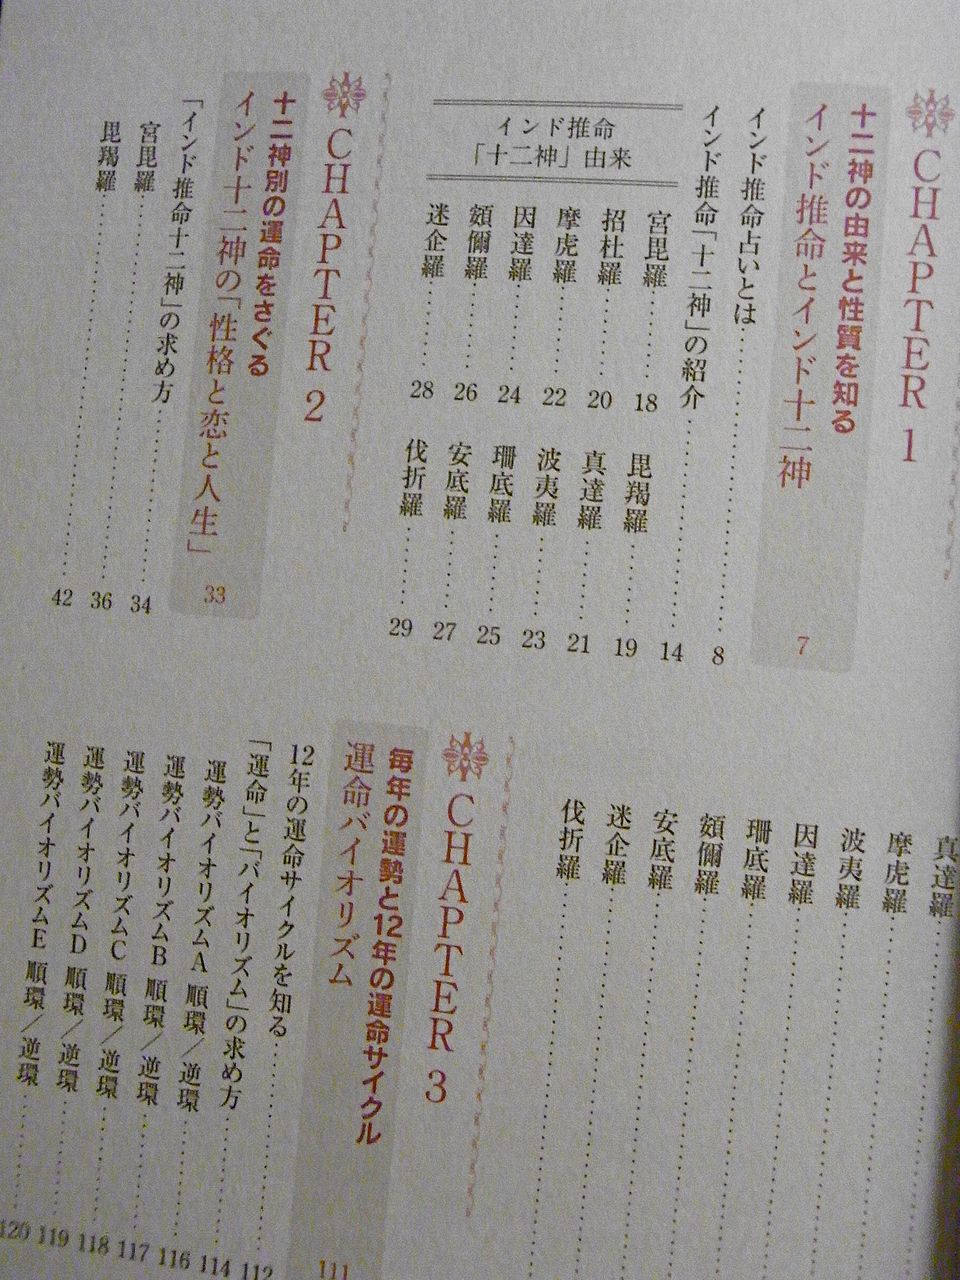 CHAPTER 1
十二神の由来と性質を知る
インド推命とインド十二神 7
インド推命占いとは 8
インド推命「十二神」の紹介 14
インド推命
「十二神」由来
宮毘羅 18
毘羯羅 19
招杜羅 20
真達羅 21
摩虎羅 22
波夷羅 23
因達羅 24
珊底羅 25
頞儞羅 26
安底羅 27
迷企羅 28
伐折羅 29
CHAPTER 2
十二神別の運命をさぐる
インド十二神の「性格と恋と人生」 33
「インド推命十二神」の求め方 34
宮毘羅 36
毘羯羅 42
真達羅
摩虎羅
波夷羅
因達羅
珊底羅
頞儞羅
安底羅
迷企羅
伐折羅
CHAPTER 3
毎年の運勢と12年の運命サイクル
運命バイオリズム 111
12年の運命サイクルを知る 112
「運命」と「バイオリズム」の求め方 114
運勢バイオリズムA 順環／逆環 116
運勢バイオリズムB 順環／逆環 117
運勢バイオリズムC 順環／逆環 118
運勢バイオリズムD 順環／逆環 119
運勢バイオリズムE 順環／逆環 120